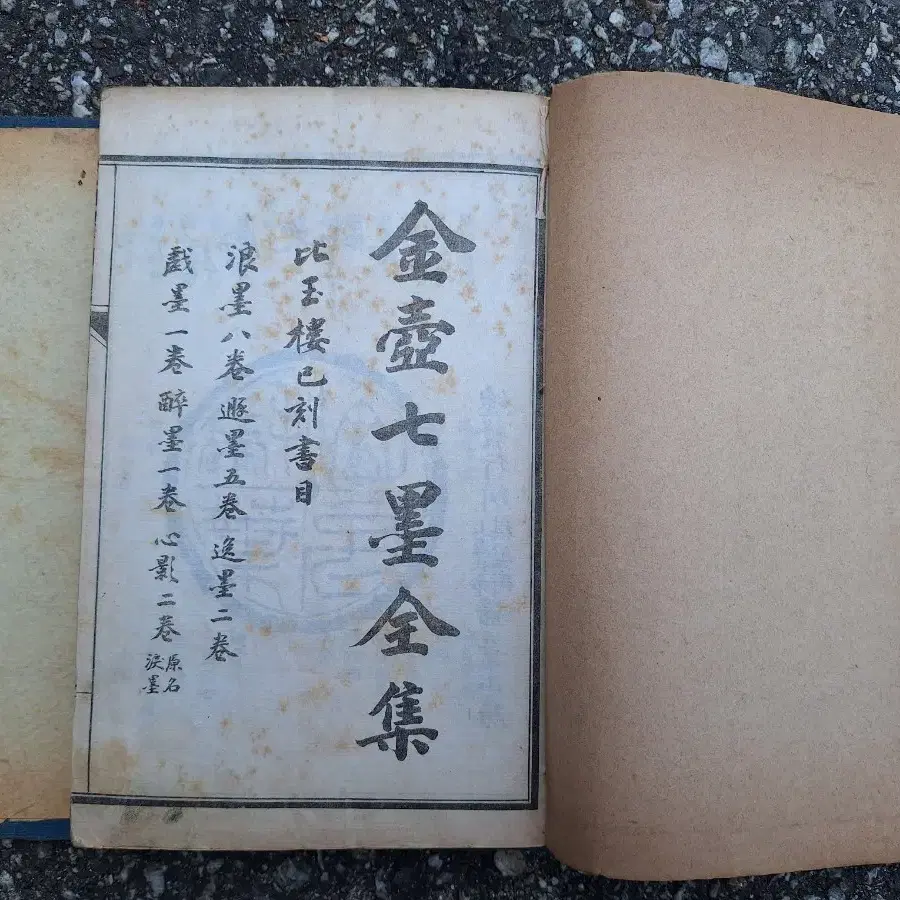 金壺七墨全集
比玉樓已刻書目
浪墨八卷 遯墨五卷 逸墨二卷
戲墨一卷 醉墨一卷 心影二卷 原名淚墨